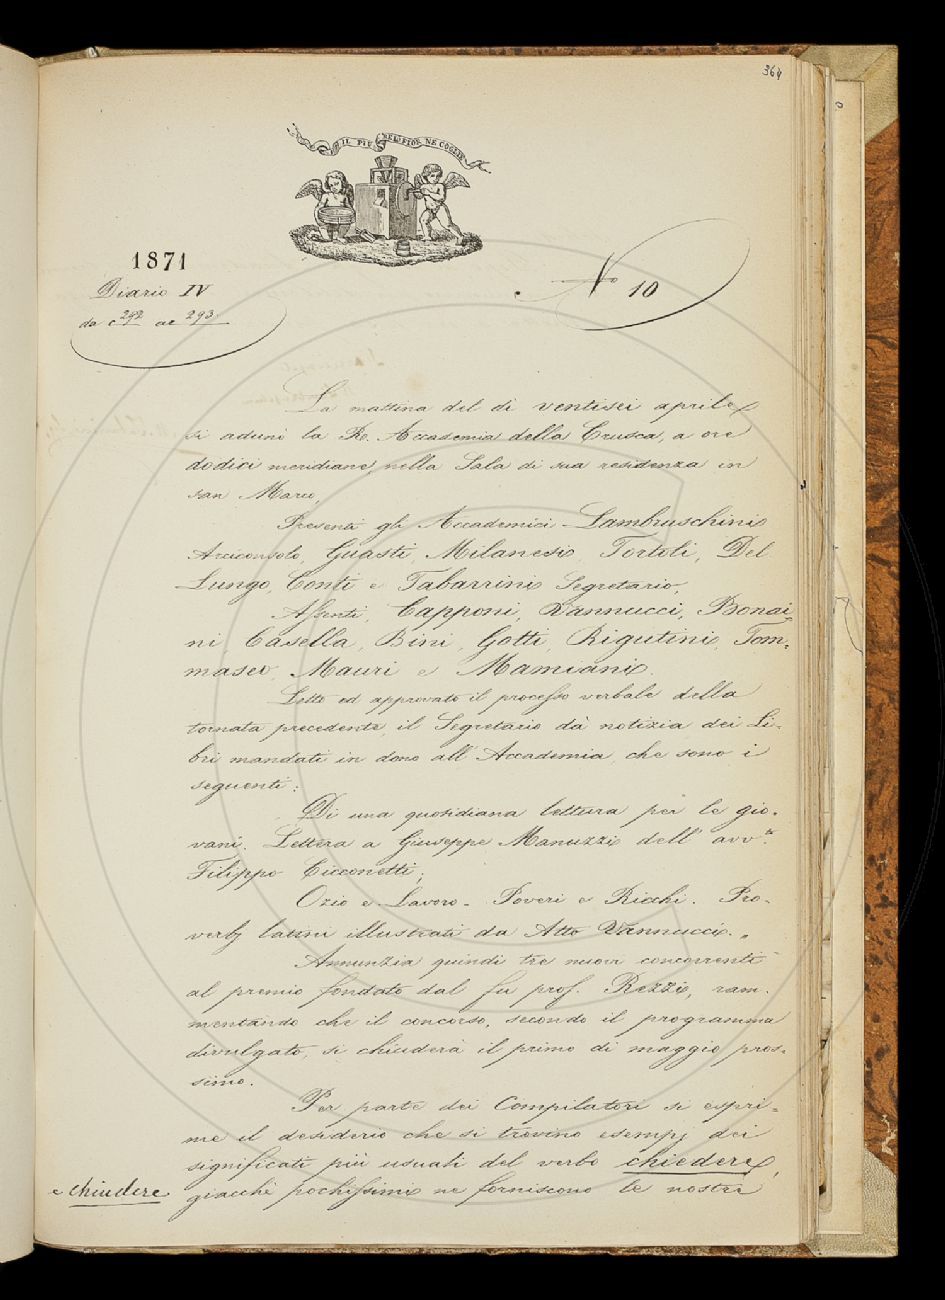 364
IL PIÙ BEL FIOR NE COGLIE
1871
Diario IV
da c 292 a c 293
N° 10
La mattina del dì ventisei aprile
si adunò la R. Accademia della Crusca, a ore
dodici meridiane, nella Sala di sua residenza in
san Marco,
Presenti gli Accademici Lambruschini
Arciconsolo, Guasti, Milanesi, Tortoli, Del
Lungo, Conti e Tabarrini Segretario;
Assenti, Capponi, Vannucci, Bonai-
ni Casella, Bini, Gotti, Rigutini, Tom-
maseo, Mauri e Mamiani.
Letto ed approvato il processo verbale della
tornata precedente, il Segretario dà notizia dei Li-
bri mandati in dono all'Accademia, che sono i
seguenti:
Di una quotidiana lettura per le gio-
vani. Lettera a Giuseppe Manuzzi dell'avv.to
Filippo Cicconetti;
Ozio e Lavoro - Poveri e Ricchi. Pro-
verbj latini illustrati da Atto Vannucci. „
Annunzia quindi tre nuovi concorrenti
al premio fondato dal fu prof. Rezzi, ram-
mentando che il concorso, secondo il programma
divulgato, si chiuderà il primo di maggio pros-
simo.
Per parte dei Compilatori si espri-
me il desiderio che si trovino esempj dei
significati più usuali del verbo chiedere,
e chiudere giacchè pochissimi ne forniscono le nostre